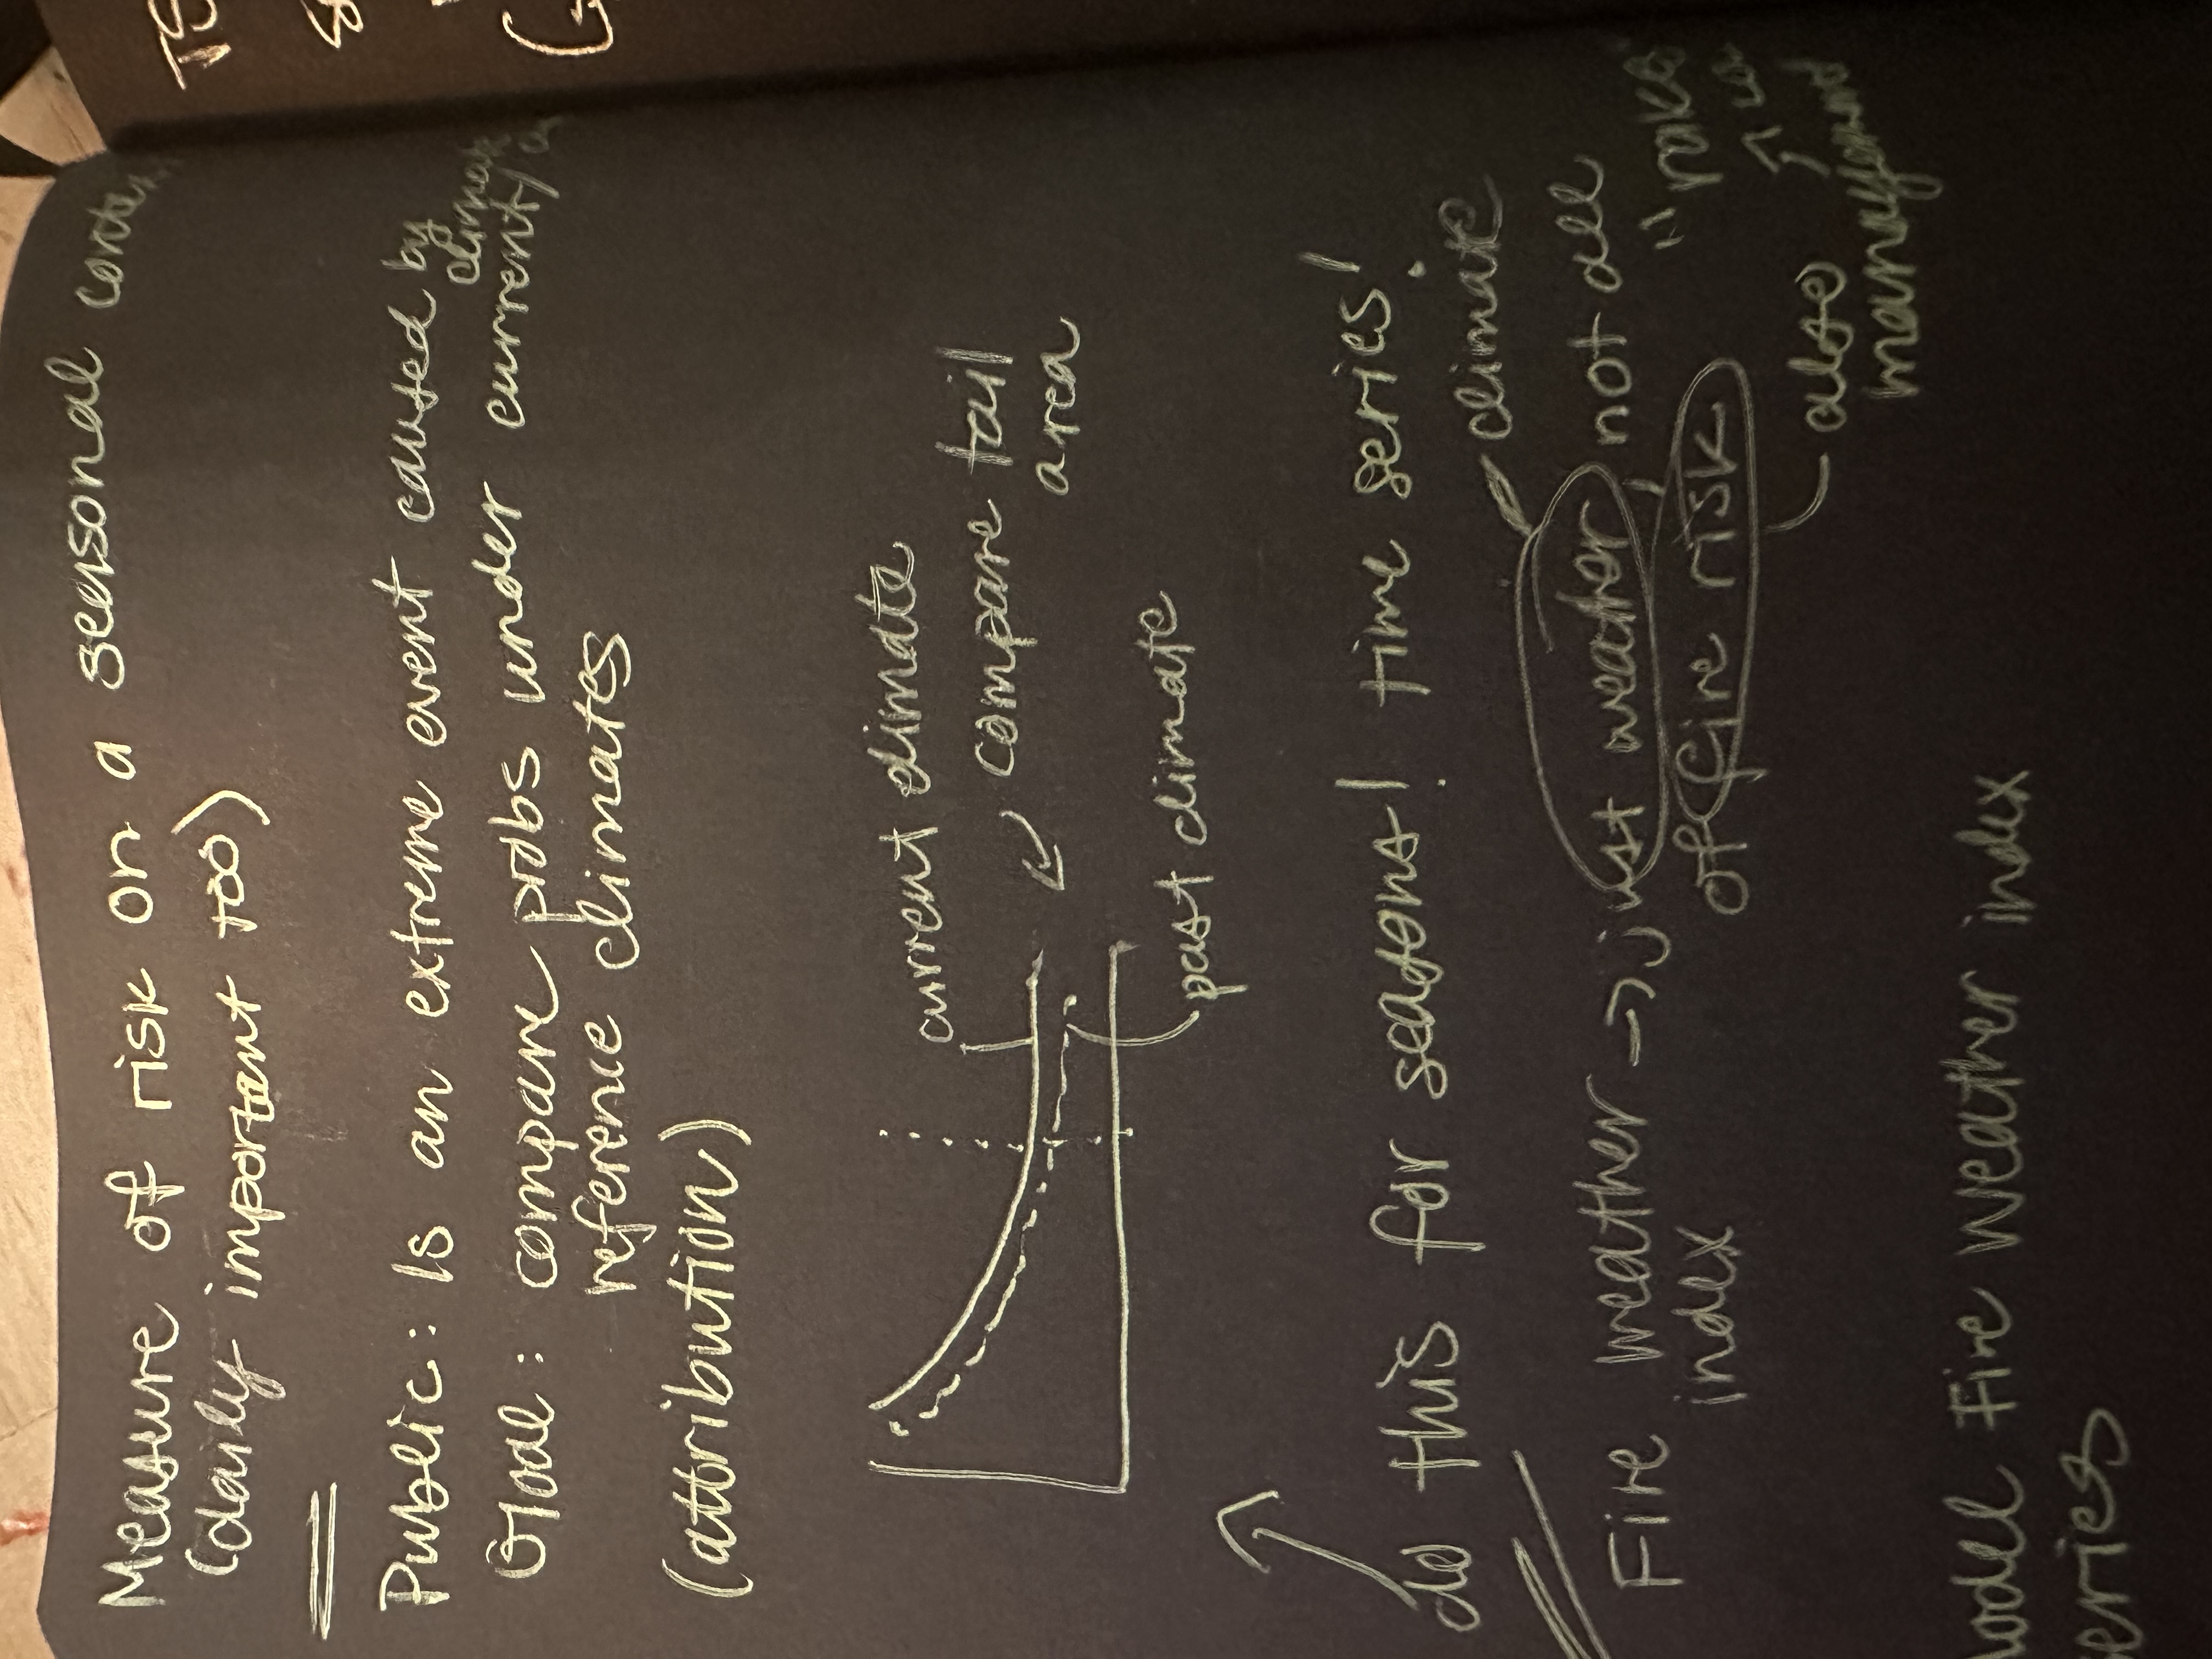 Measure of risk on a seasonal
(daily important too)
Public: Is an extreme event caused by
climate
Goal: compare probs under current/
reference climates
(attribution)
current climate
compare tail
area
past climate
do this for seasonal time series!
climate
Fire weather → just weather not all
index of fire risk "rake
also
management
Fire weather index
eries
TS